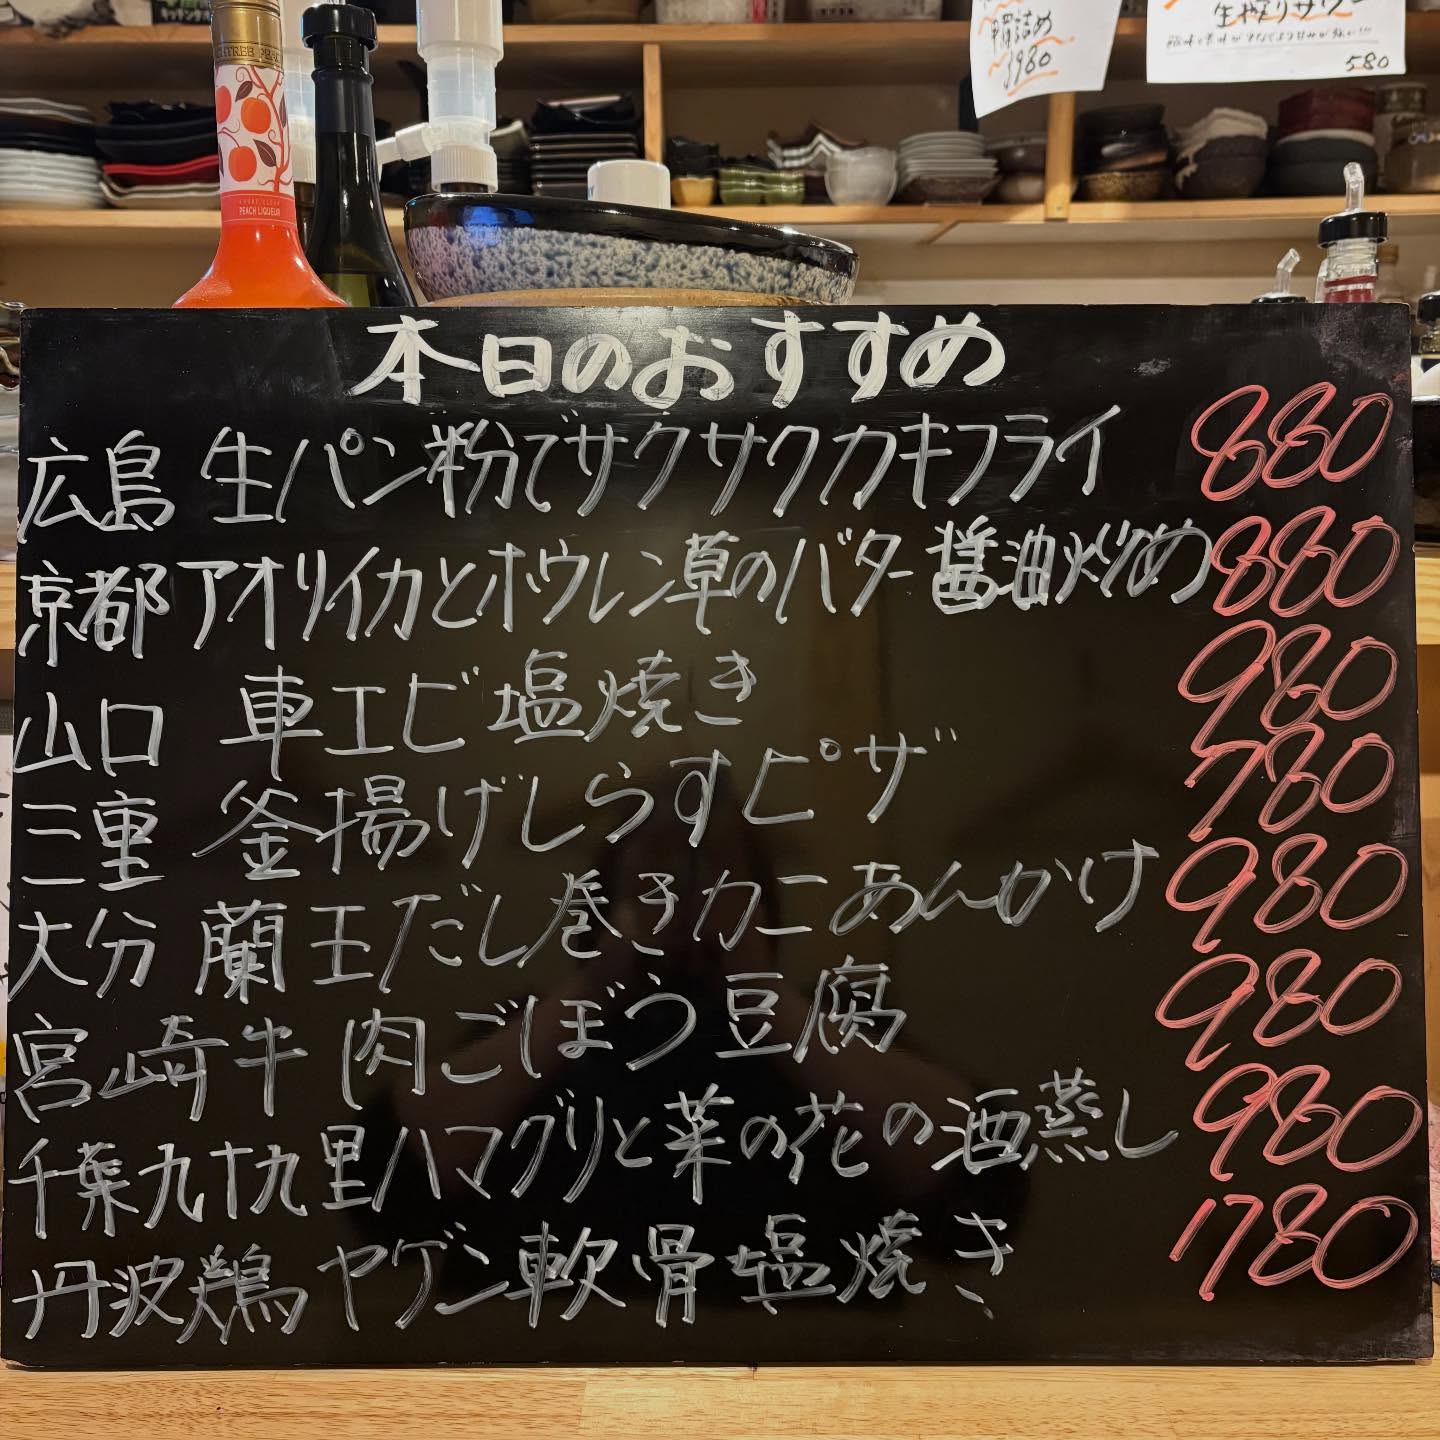 胃詰め
980
生搾りサワー
580
PEACH LIQUEUR
本日のおすすめ
広島 生パン粉でサクサクカキフライ 880
京都 アオリイカとホウレン草のバター醤油炒め 880
山口 車エビ塩焼き 980
三重 釜揚げしらすピザ 780
大分 蘭王だし巻きカニあんかけ 980
宮崎牛 肉ごぼう豆腐 980
千葉九十九里ハマグリと菜の花の酒蒸し 980
丹波鶏 ヤゲン軟骨塩焼き 1780